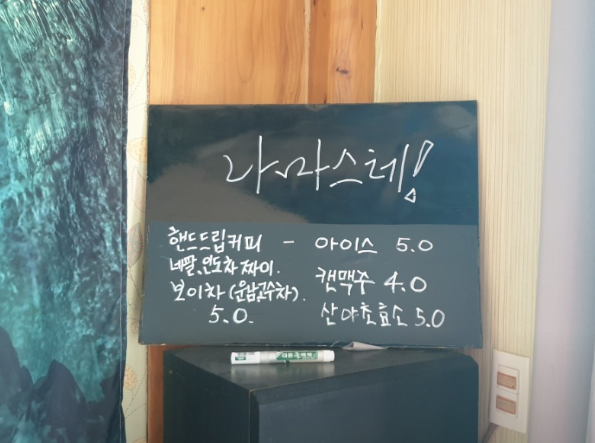 나마스테!
핸드드립커피 - 아이스 5.0
네팔,인도차 짜이.
캔맥주 4.0
보이차(운남고수차).
5.0.
산야초효소 5.0